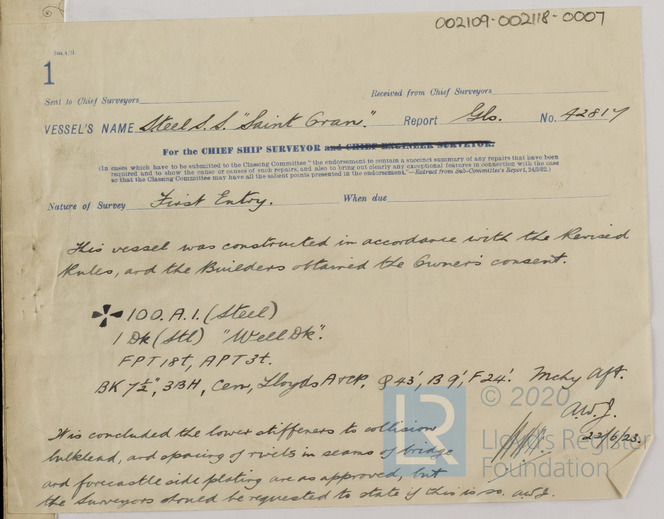 002109-002118-0007
1
Sent to Chief Surveyors
Received from Chief Surveyors
VESSEL'S NAME Steel S.S. "Saint Oran." Report Gls. No. 42817
For the CHIEF SHIP SURVEYOR and CHIEF ENGINEER SURVEYOR.
(In cases which have to be submitted to the Classing Committee "the endorsement to contain a succinct summary of any repairs that have been
required and to show the cause or causes of such repairs; and also to bring out clearly any exceptional features in connection with the case
so that the Classing Committee may have all the salient points presented in the endorsement."—Extract from Sub-Committee's Report,
Nature of Survey First Entry. When due
This vessel was constructed in accordance with the Revised
Rules, and the Builders obtained the Owner's consent.
✠ 100.A.1. (Steel)
1 Dk (Stl) "Well Dk".
FPT 18t, APT 3t.
BK 7½", 3BH, Cem, Lloyds A&CP, Q 43', B 9', F 24'. Mchy Aft.
A.W.J.
23/6/23.
It is concluded the lower stiffeners to collision
bulkhead, and spacing of rivets in seams of bridge
and forecastle side plating are as approved, but
the Surveyors should be requested to state if this is so. AWJ.
LR
© 2020
Lloyd's Register
Foundation